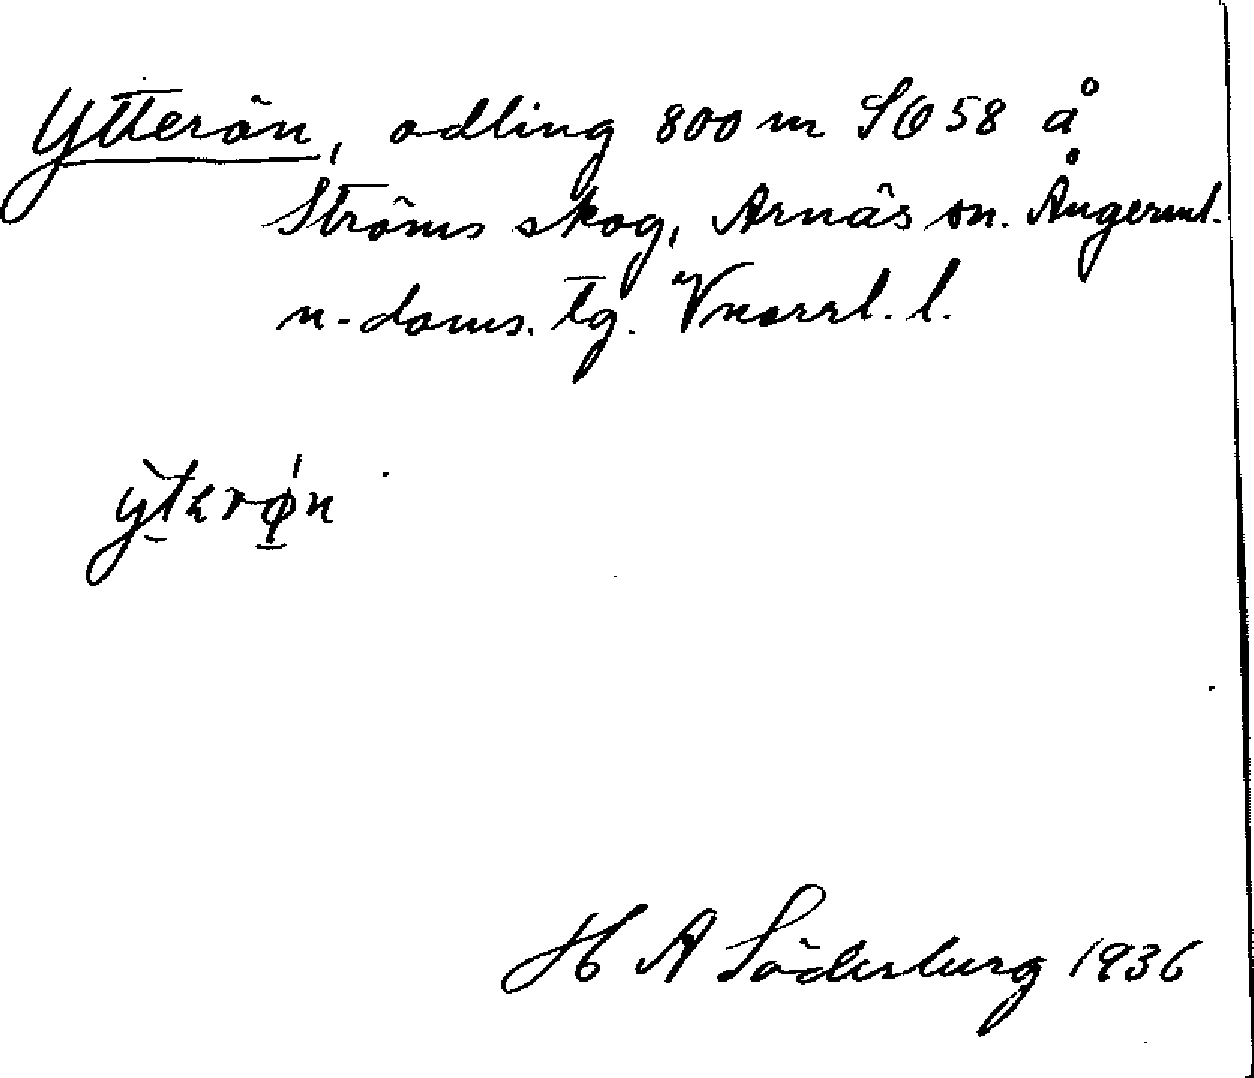 Ytterön, odling 800 m SO 58 å
Ströms skog, Arnäs sn. Ångerml.
n. doms. tg. Vnorrl. l.
H A Söderberg 1936